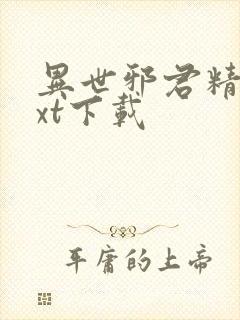 異世邪君精
xt下載
平庸的上帝